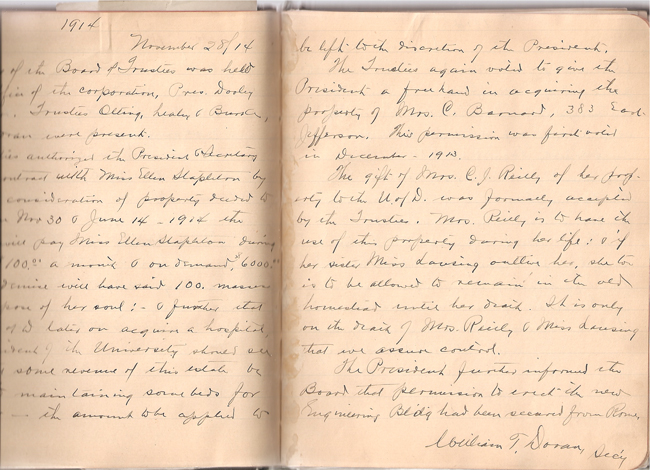 1914
November 28/14
of the Board of Trustees was held
of the corporation, Pres. Dooley
Trustees Otting, Nealey & Burke,
were present.
authorized the President & Secretary
contract with Miss Ellen Stapleton by
consideration of property deeded to
Nov 30 & June 14 - 1914 the
will pay Miss Ellen Stapleton during
100.00 a month & on demand, $6000.00
demise will have said 100. masses
of her soul: - & further that
of D later on acquire a hospital
of the University should see
some revenue of this estate be
maintaining some beds for
the amount to be applied to
be left to the discretion of the President.
The Trustees again voted to give the
President a free hand in acquiring the
property of Mrs. C. Barnard, 383 East
Jefferson. This permission was first voted
in December - 1913.
The gift of Mrs. C. J. Reilly of her prop-
erty to the U of D. was formally accepted
by the Trustees. Mrs. Reilly is to have the
use of this property during her life: & if
her sister Miss Lansing outlive her, she too
is to be allowed to remain in the old
homestead until her death. It is only
on the death of Mrs. Reilly & Miss Lansing
that we assume control.
The President further informed the
Board that permission to erect the new
Engineering Bldg had been secured from Rome.
William T. Doran, Sec'y